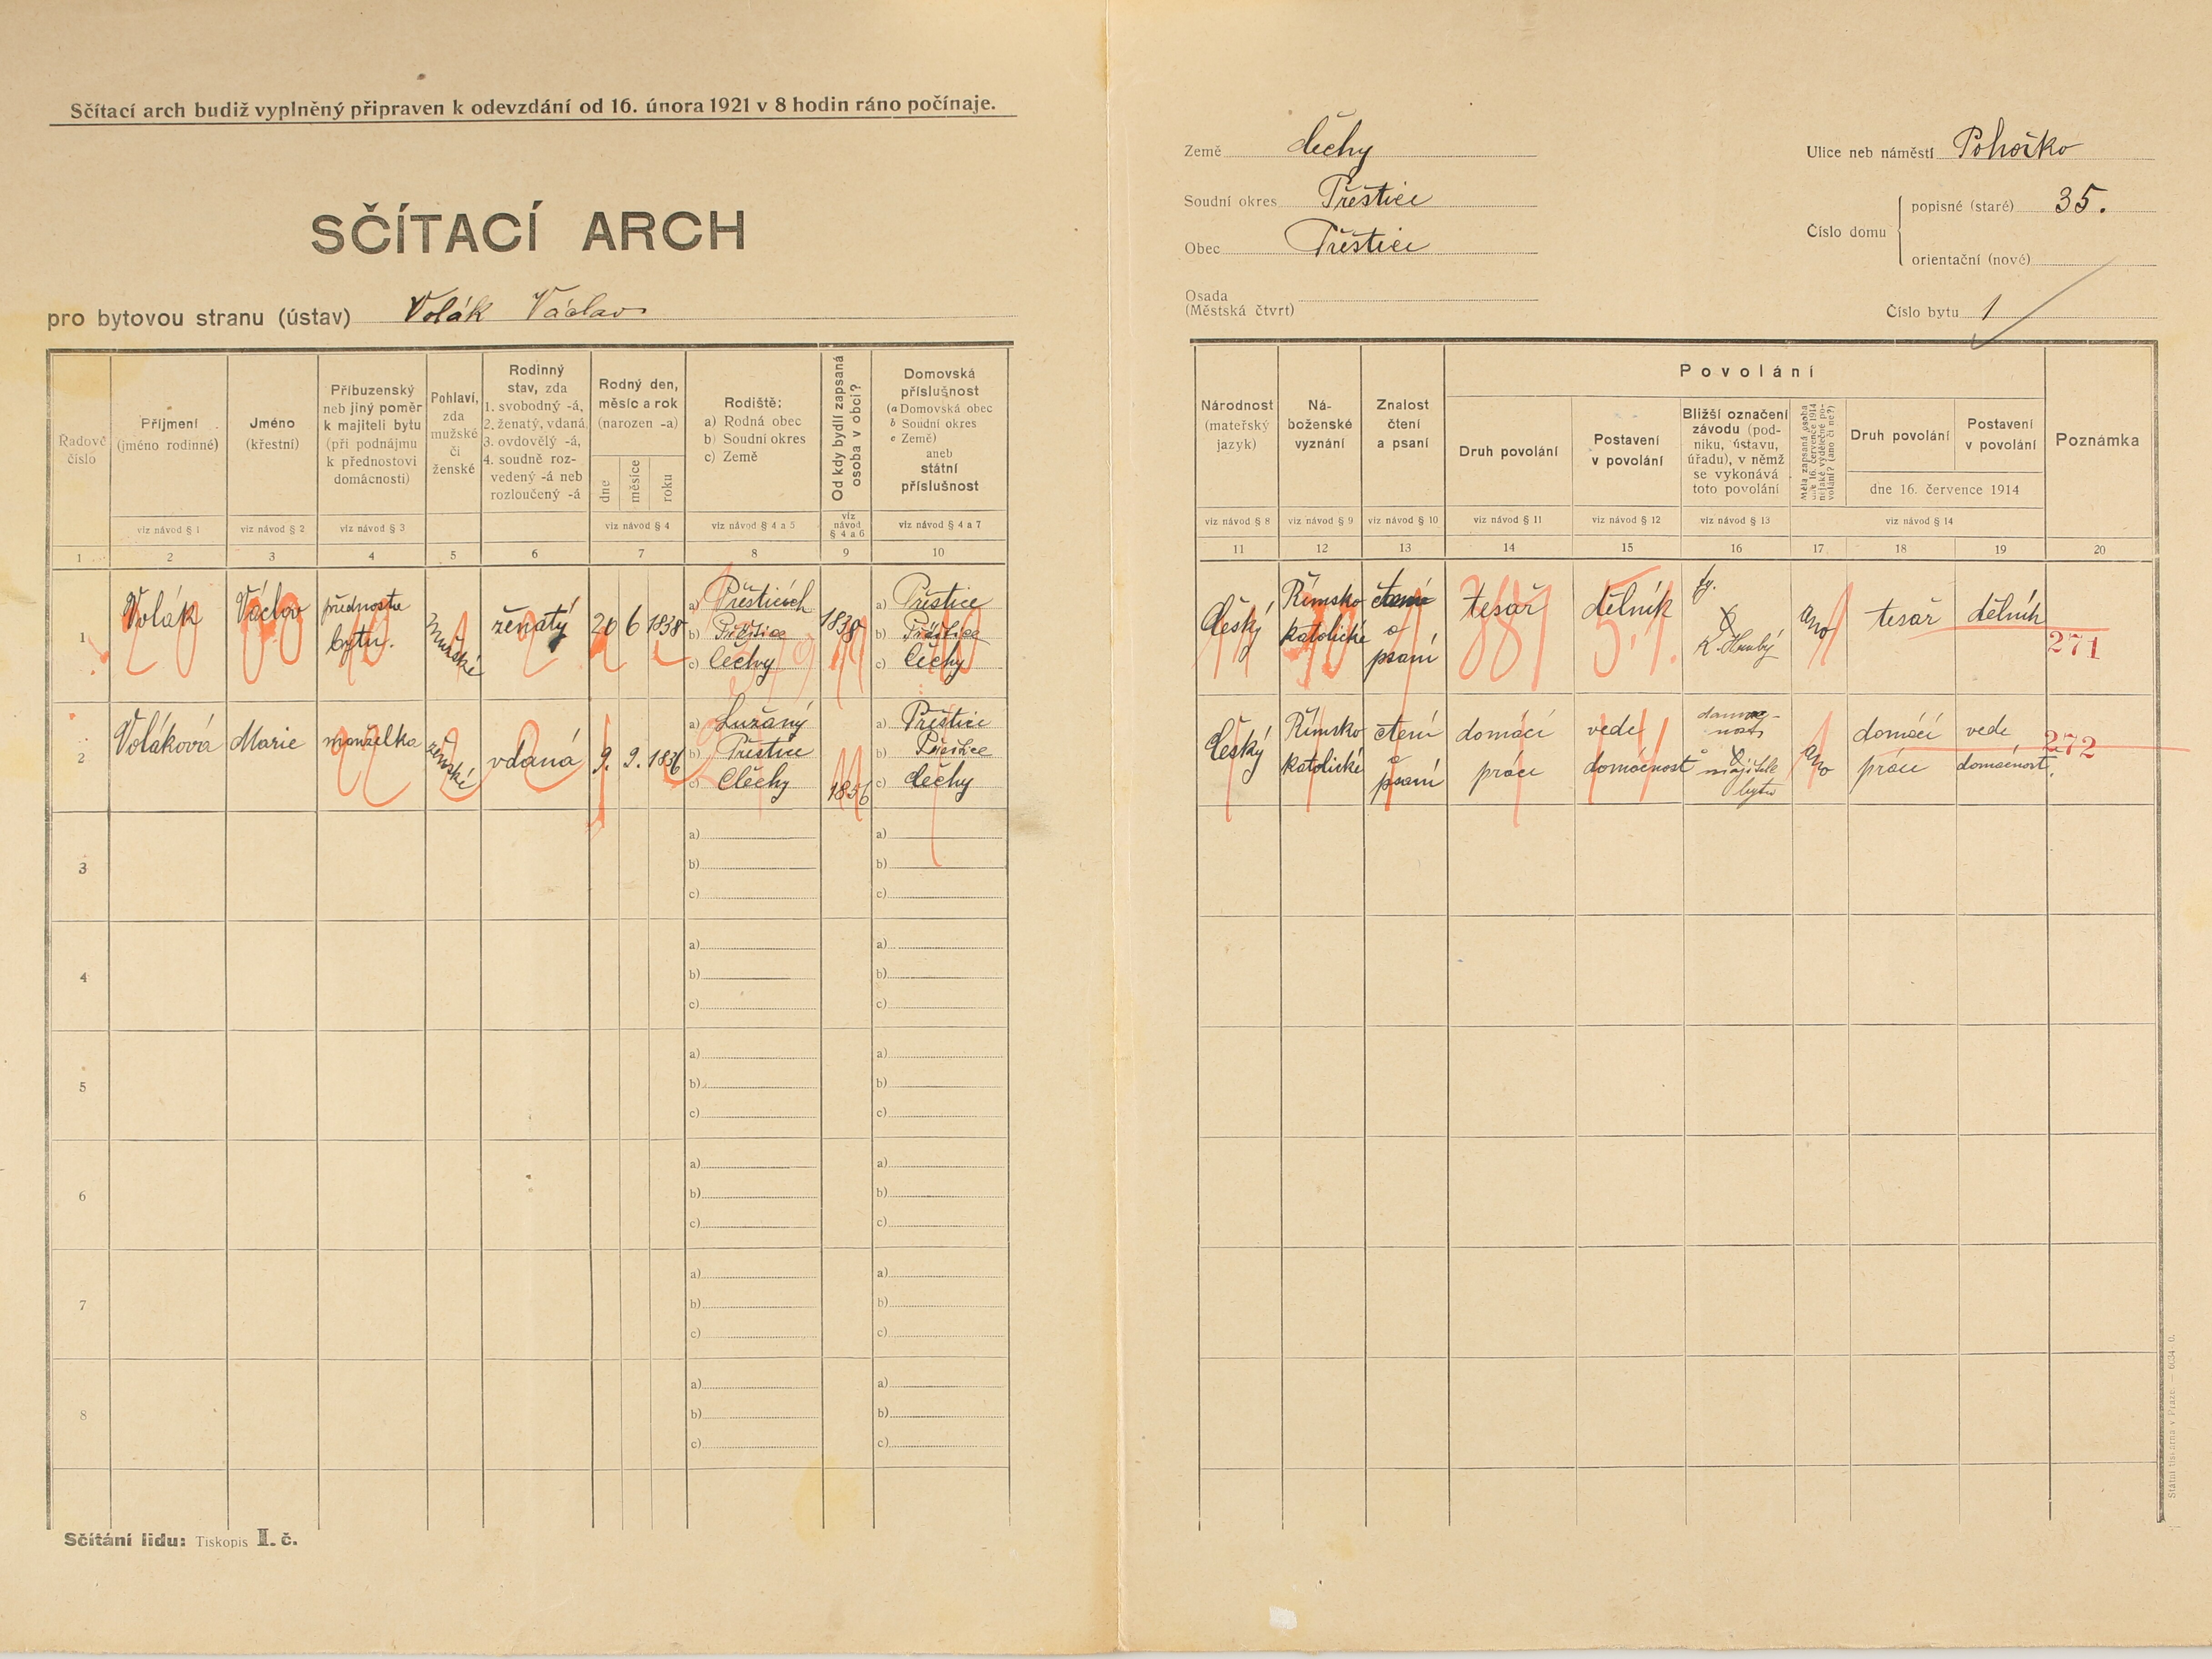 Sčítací arch budiž vyplněný připraven k odevzdání od 16. února 1921 v 8 hodin ráno počínaje.
SČÍTACÍ ARCH
pro bytovou stranu (ústav) Volák Václav
Země Čechy
Soudní okres Přeštice
Obec Přeštice
Osada
(Městská čtvrt)
Ulice neb náměstí
Číslo domu
popisné (staré) 35.
orientační (nové)
Číslo bytu 1
Řadové číslo
Příjmení
(jméno rodinné)
viz návod § 1
Jméno
(křestní)
viz návod § 2
Příbuzenský
neb jiný poměr
k majiteli bytu
(při podnájmu
k přednostovi
domácnosti)
viz návod § 3
Pohlaví,
zda
mužské
či
ženské
Rodinný
stav, zda
1. svobodný -á,
2. ženatý, vdaná,
3. ovdovělý -á,
4. soudně roz-
vedený -á neb
rozloučený -á
Rodný den,
měsíc a rok
(narozen -a)
dne
měsíce
roku
viz návod § 4
Rodiště:
a) Rodná obec
b) Soudní okres
c) Země
viz návod § 4 a 5
Od kdy bydlí zapsaná
osoba v obci?
viz
návod
§ 4 a 6
Domovská
příslušnost
(a Domovská obec
b Soudní okres
c Země)
aneb
státní
příslušnost
viz návod § 4 a 7
1 2 3 4 5 6 7 8 9 10
Národnost
(mateřský
jazyk)
viz návod § 8
Ná-
boženské
vyznání
viz návod § 9
Znalost
čtení
a psaní
viz návod § 10
Povolání
Druh povolání
viz návod § 11
Postavení
v povolání
viz návod § 12
Bližší označení
závodu (pod-
niku, ústavu,
úřadu), v němž
se vykonává
toto povolání
viz návod § 13
Měla zapsaná osoba
dne 16. července 1914
nějaké výdělečné po-
volání? (ano či ne?)
Druh povolání
Postavení
v povolání
dne 16. července 1914
viz návod § 14
Poznámka
11 12 13 14 15 16 17 18 19 20
1
Volák
Václav
přednosta
bytu.
Mužské
ženatý
20 6 1838
a) Přešticích
b) Přeštice
c) Čechy
1838
a) Přeštice
b) Přeštice
c) Čechy
český
Římsko
katolické
a
psaní
tesař
dělník
ano
tesař
dělník
271
2
Voláková
Marie
manželka
ženské
vdaná
9. 9. 1836
a) Lužany
b) Přeštice
c) Čechy
1856
a) Přeštice
b) Přeštice
c) Čechy
český
Římsko
katolické
čtení
a
psaní
domácí
práce
vede
domácnost
majitele
bytu
ano
domácí
práce
vede
domácnost.
272
3
a)
b)
c)
a)
b)
c)
4
a)
b)
c)
a)
b)
c)
5
a)
b)
c)
a)
b)
c)
6
a)
b)
c)
a)
b)
c)
7
a)
b)
c)
a)
b)
c)
8
a)
b)
c)
a)
b)
c)
Sčítání lidu: Tiskopis I. č.
Státní tiskárna v Praze. — 6034-0.